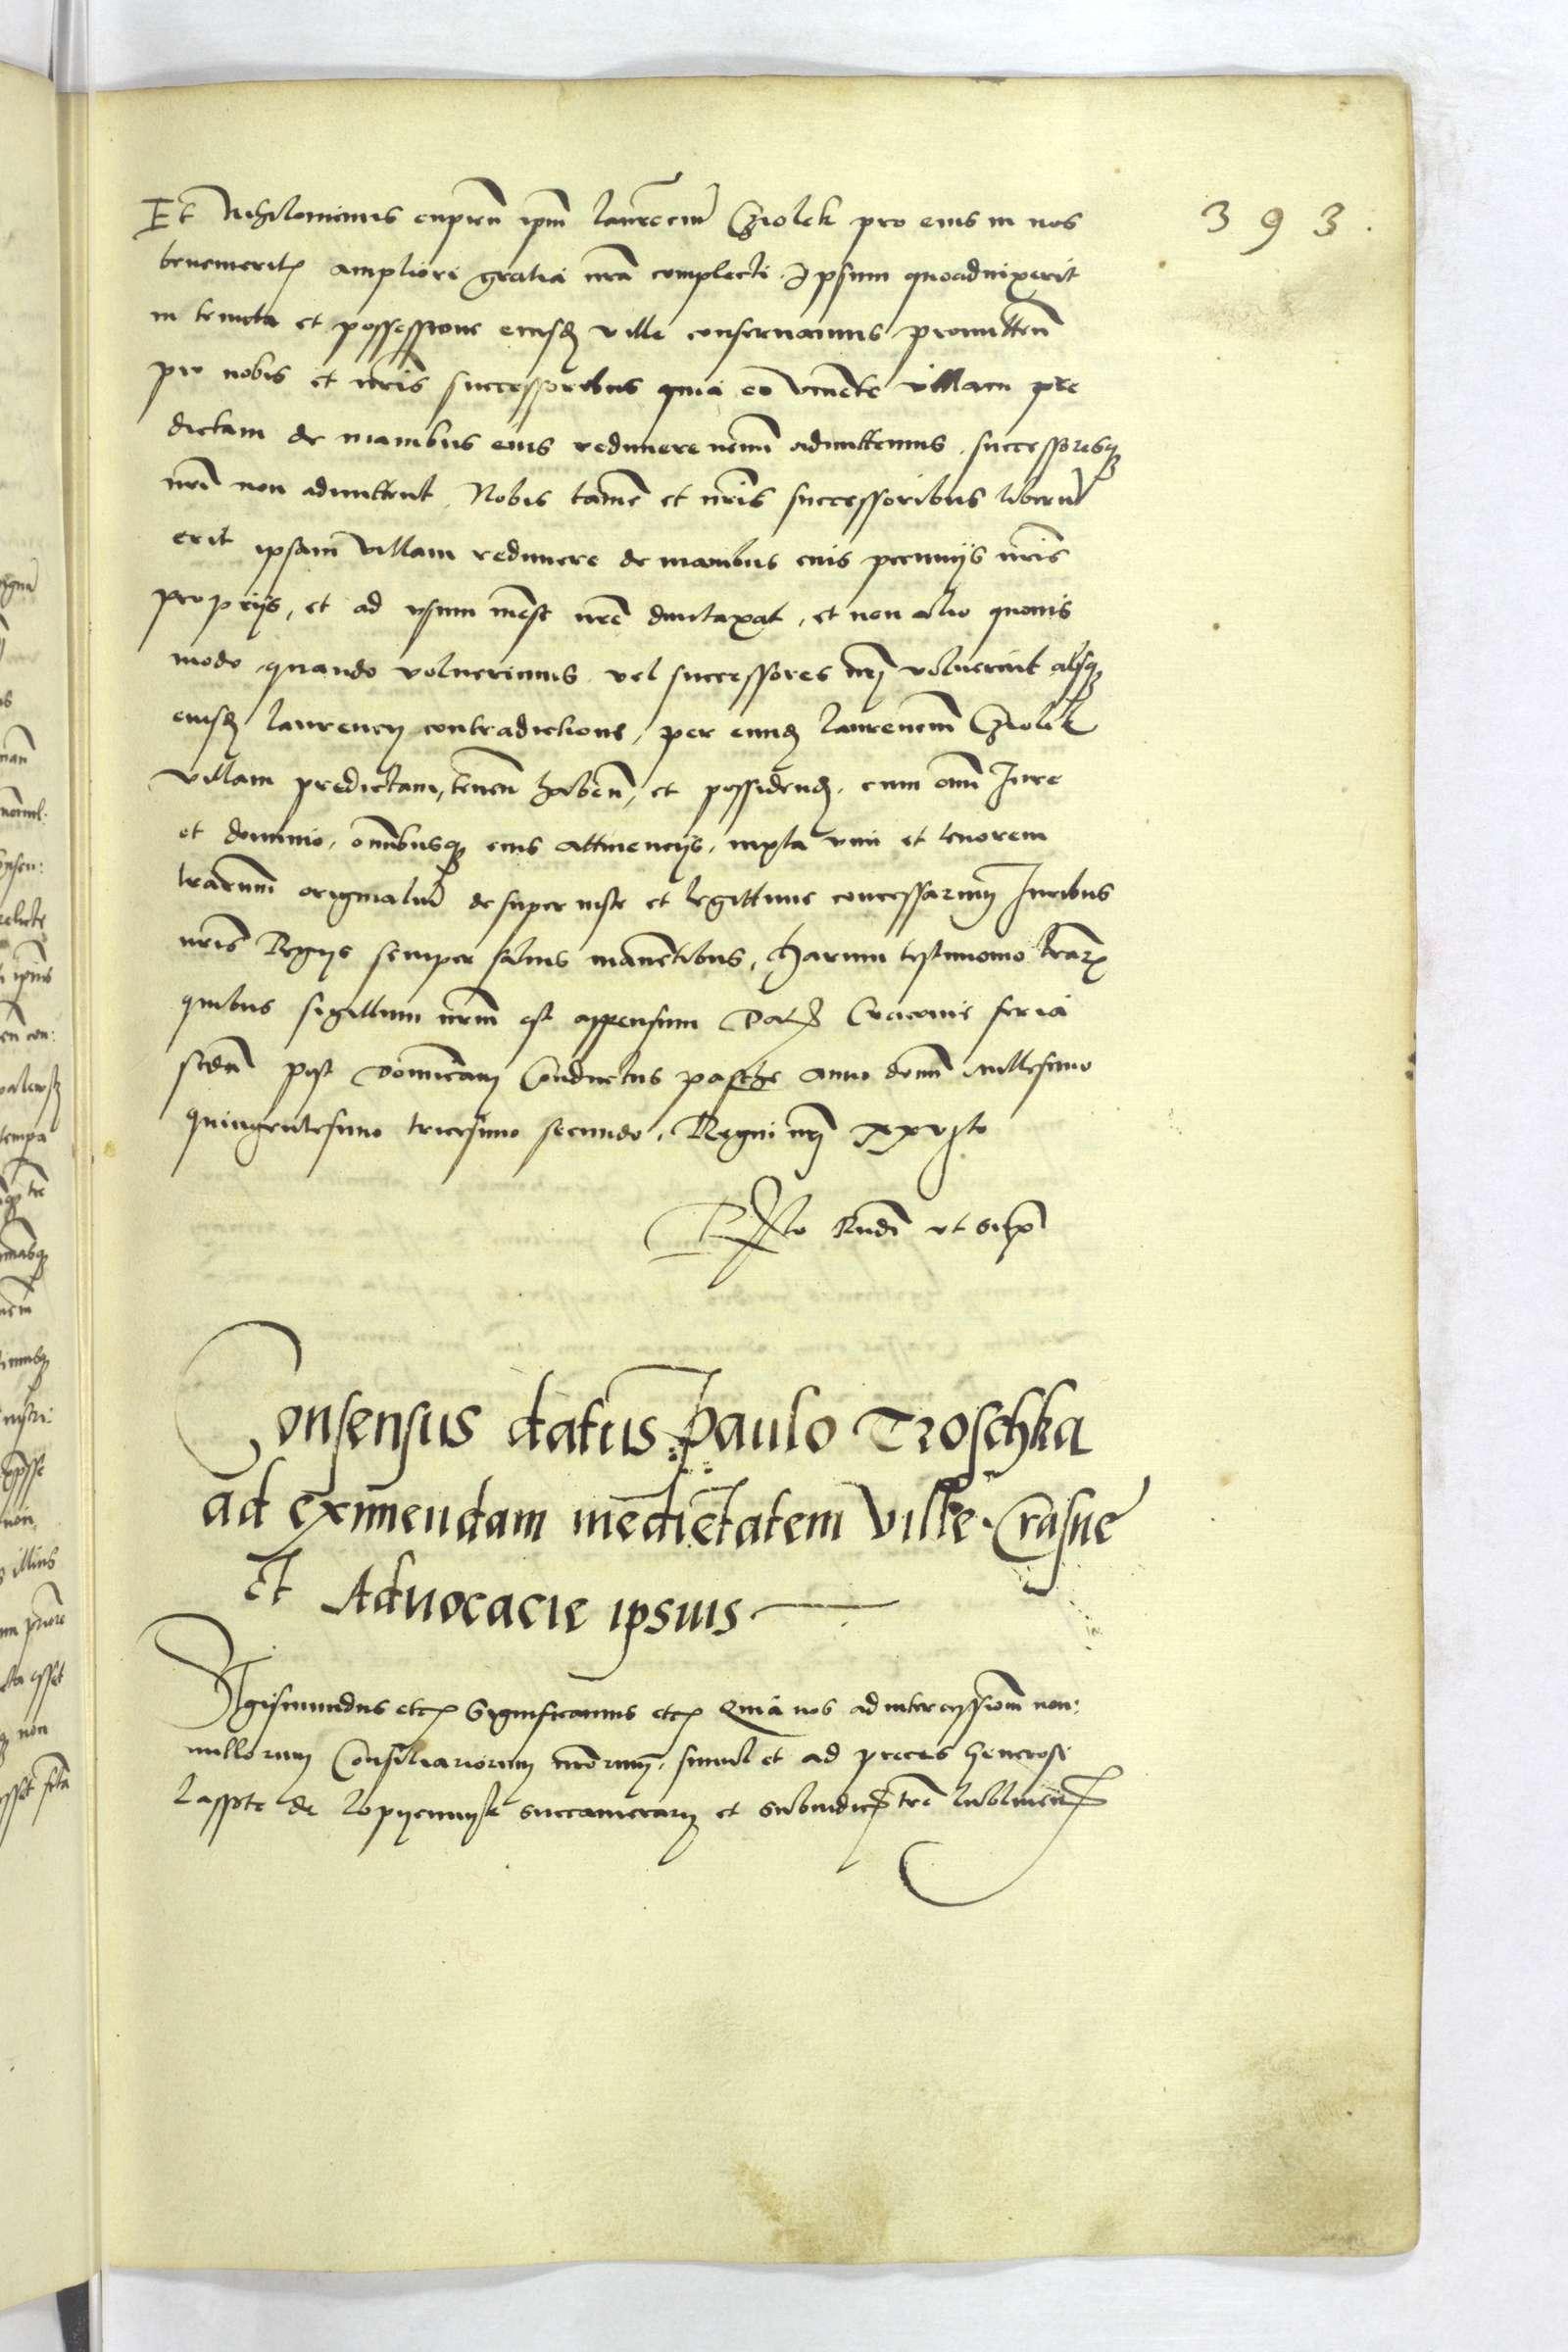 393.
Et nihilominus cupien ipm laurēciū Cziolek pro eius in nos
benemeritꝭ ampliori gratia nrā complecti Ipsum quoadvixerit
in tenuta et possessione eiusdꝫ ville conservamus promitten̄
pro nobis et nrīs successoribus quia eo vivēte villam pre
dictam de manibus eius redimere nemī admittemus, successoresqꝫ
nrī non admittent, Nobis tamē et nrīs successoribus liberū
erit ipsam villam redimere de manibus eius pecunijs nrīs
proprijs, et ad usum mēse nrē duntaxat, et non alio quovis
modo quando voluerimus vel successores nrī voluerint absqꝫ
eiusdꝫ laurencij contradictione, per eundꝫ laurencīu Cziolek
villam predictam, tenen̄ haben̄, et possidendꝫ, cum omī Iure
et dominio, omībusqꝫ eius attinencijs, iuxta vim et tenorem
lrarum originaliū desuper iuste et legittime concessarum Iuribus
nrīs Regijs semper salvis manētibus, harum testimonio lrarꝫ
quibus sigillum nrm̄ est appensum Datꝭ Cracovie feria
scdā post dominicam Conductus pasche anno domī millesimo
quingentesimo tricesimo secundo, Regni nrī xxvjto
Rfto eiusdī ut supꝛ
Consensus datus Paulo Troschka
ad eximendam medietatem ville Crasne
Et Advocacie ipsius
Sigismundus etcꝭ Significamus etcꝭ Quia nos ad intercessionē non:
nullorum Consiliariorum nrōrum, simul et ad preces generosi
lasste de lopyennyk succamerarij et subiudicꝭ trē lublinenꝭ